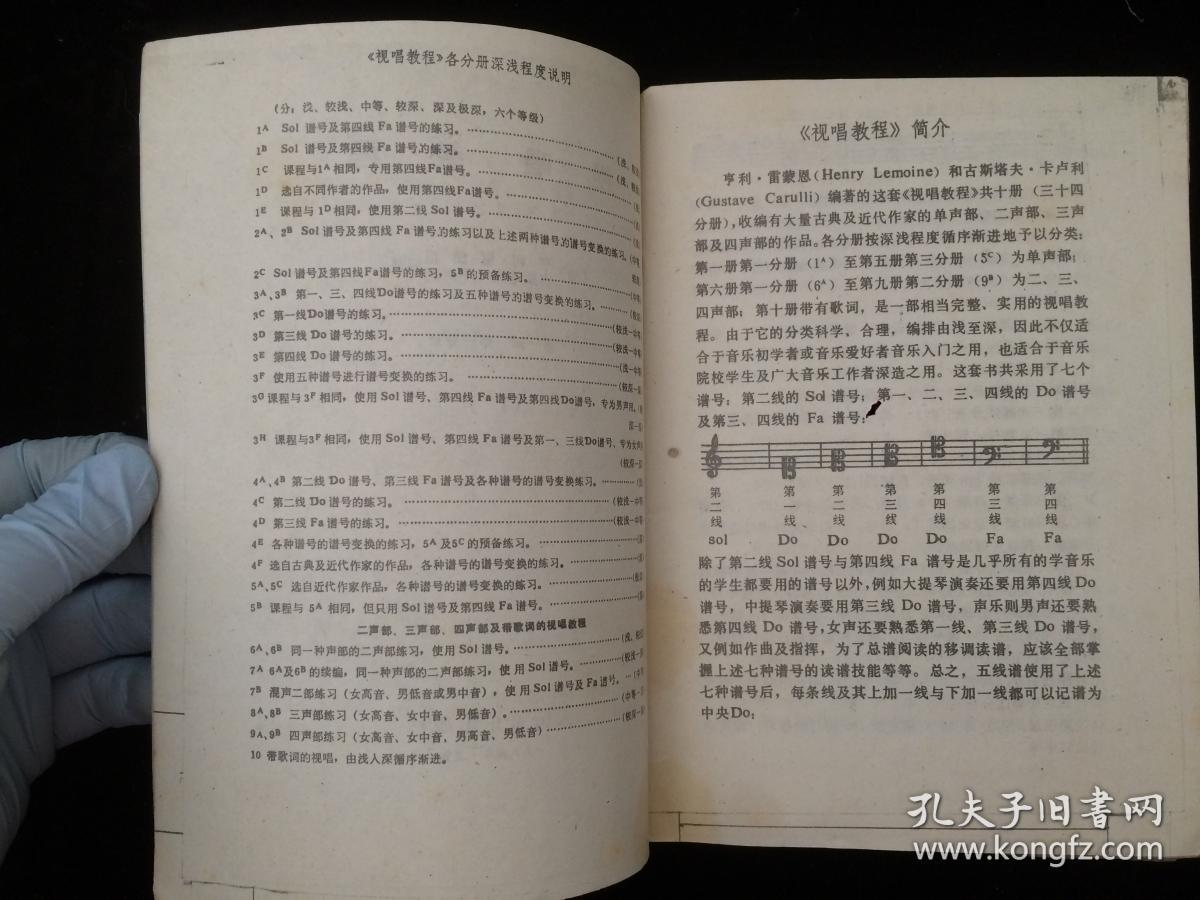 《视唱教程》各分册深浅程度说明
(分：浅、较浅、中等、较深、深及极深，六个等级)
1A Sol 谱号及第四线 Fa 谱号的练习。
1B Sol 谱号及第四线 Fa 谱号的练习。
1C 课程与1A相同，专用第四线Fa谱号。
1D 选自不同作者的作品，使用第四线Fa谱号。
1E 课程与 1D相同，使用第二线 Sol 谱号。
2A、2B Sol 谱号及第四线 Fa 谱号的练习以及上述两种谱号的谱号变换的练习。
2C Sol谱号及第四线Fa谱号的练习，5B的预备练习。
3A、3B 第一、三、四线Do谱号的练习及五种谱号的谱号变换的练习。
3C 第一线Do谱号的练习。……(较浅—中等
3D 第三线 Do 谱号的练习。……(较浅—中等
3E 第四线 Do 谱号的练习。……(较浅—中等
3F 使用五种谱号进行谱号变换的练习。
3G 课程与 3F 相同，使用 Sol 谱号、第四线 Fa 谱号及第四线Do谱号，专为男声用。
3H 课程与3F相同，使用 Sol 谱号、第四线 Fa 谱号及第一、三线Do谱号、专为女声
4A、4B 第二线 Do 谱号、第三线 Fa 谱号及各种谱号的谱号变换的练习。
4C 第二线 Do 谱号的练习。……(较浅—中等
4D 第三线 Fa 谱号的练习。……(较浅—中等
4E 各种谱号的谱号变换的练习，5A 及5C 的预备练习。
4F 选自古典及近代作家的作品，各种谱号的谱号变换的练习。
5A、5C 选自近代作家作品，各种谱号的谱号变换的练习。
5B 课程与 5A 相同，但只用 Sol 谱号及第四线 Fa 谱号。
二声部、三声部、四声部及带歌词的视唱教程
6A、6B 同一种声部的二声部练习，使用 Sol 谱号。
7A 6A及6B的续编，同一种声部的二声部练习，使用 Sol 谱号。
7B 混声二部练习（女高音、男低音或男中音），使用 Sol 谱号及 Fa 谱号。
8A、8B 三声部练习（女高音、女中音、男低音）。
9A、9B 四声部练习（女高音、女中音、男高音、男低音）
10 带歌词的视唱，由浅入深循序渐进。
《视唱教程》简介
亨利·雷蒙恩(Henry Lemoine) 和古斯塔夫·卡卢利
(Gustave Carulli) 编著的这套《视唱教程》共十册（三十四
分册)，收编有大量古典及近代作家的单声部、二声部、三声
部及四声部的作品。各分册按深浅程度循序渐进地予以分类：
第一册第一分册（1A）至第五册第三分册（5C）为单声部；
第六册第一分册（6A）至第九册第二分册（9B）为二、三、
四声部；第十册带有歌词，是一部相当完整、实用的视唱教
程。由于它的分类科学、合理，编排由浅至深，因此不仅适
合于音乐初学者或音乐爱好者音乐入门之用，也适合于音乐
院校学生及广大音乐工作者深造之用。这套书共采用了七个
谱号；第二线的 Sol 谱号；第一、二、三、四线的 Do 谱号
及第三、四线的 Fa 谱号：
第二线 第一线 第二线 第三线 第四线 第三线 第四线
sol Do Do Do Do Fa Fa
除了第二线 Sol 谱号与第四线 Fa 谱号是几乎所有的学音乐
的学生都要用的谱号以外，例如大提琴演奏还要用第四线Do
谱号，中提琴演奏要用第三线 Do 谱号，声乐则男声还要熟
悉第四线 Do 谱号，女声还要熟悉第一线、第三线 Do 谱号，
又例如作曲及指挥，为了总谱阅读的移调读谱，应该全部掌
握上述七种谱号的读谱技能等等。总之，五线谱使用了上述
七种谱号后，每条线及其上加一线与下加一线都可以记谱为
中央Do：
孔夫子旧书网
www.kongfz.com